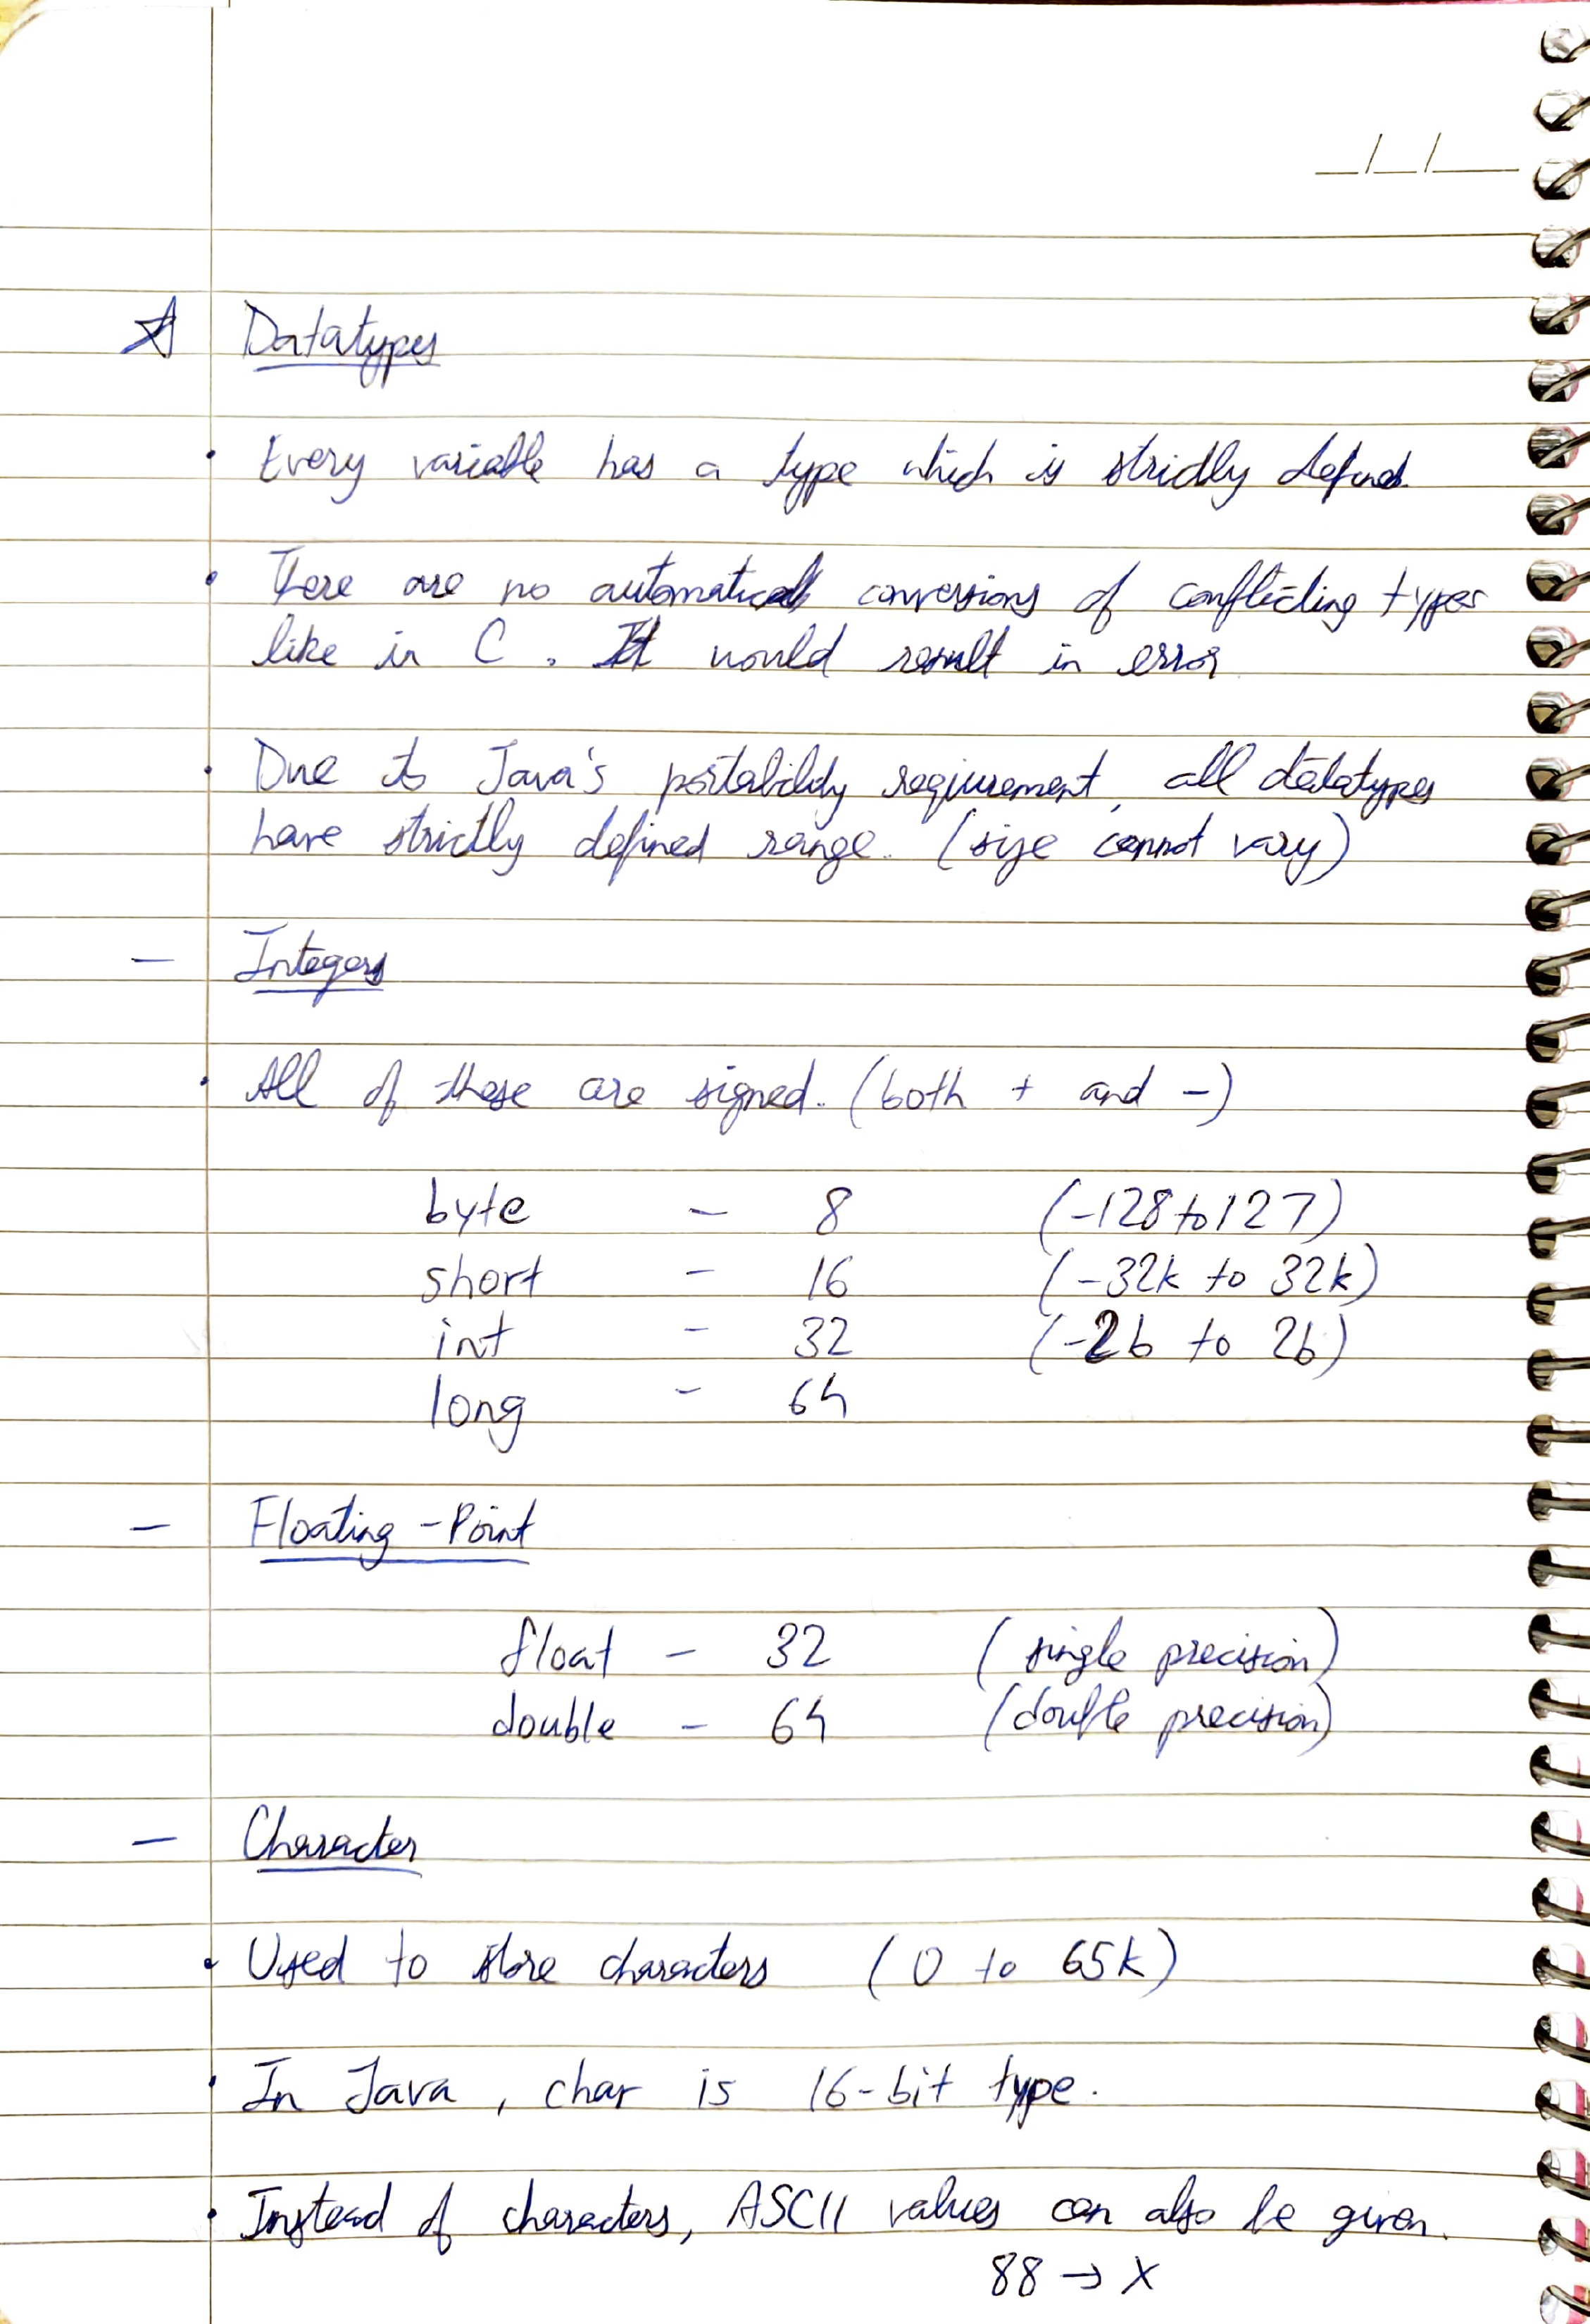 _/_/__
☆ Datatypes
• Every variable has a type which is strictly defined.
• There are no automatical conversions of conflicting types
like in C. It would result in error
• Due to Java's portability requirement, all datatypes
have strictly defined range. (size cannot vary)
- Integers
• All of these are signed. (both + and -)
byte - 8 (-128 to 127)
short - 16 (-32k to 32k)
int - 32 (-2b to 2b)
long - 64
- Floating-Point
float - 32 (single precision)
double - 64 (double precision)
- Character
• Used to store characters (0 to 65k)
• In Java, char is 16-bit type.
• Instead of characters, ASCII values can also be given.
88 → X